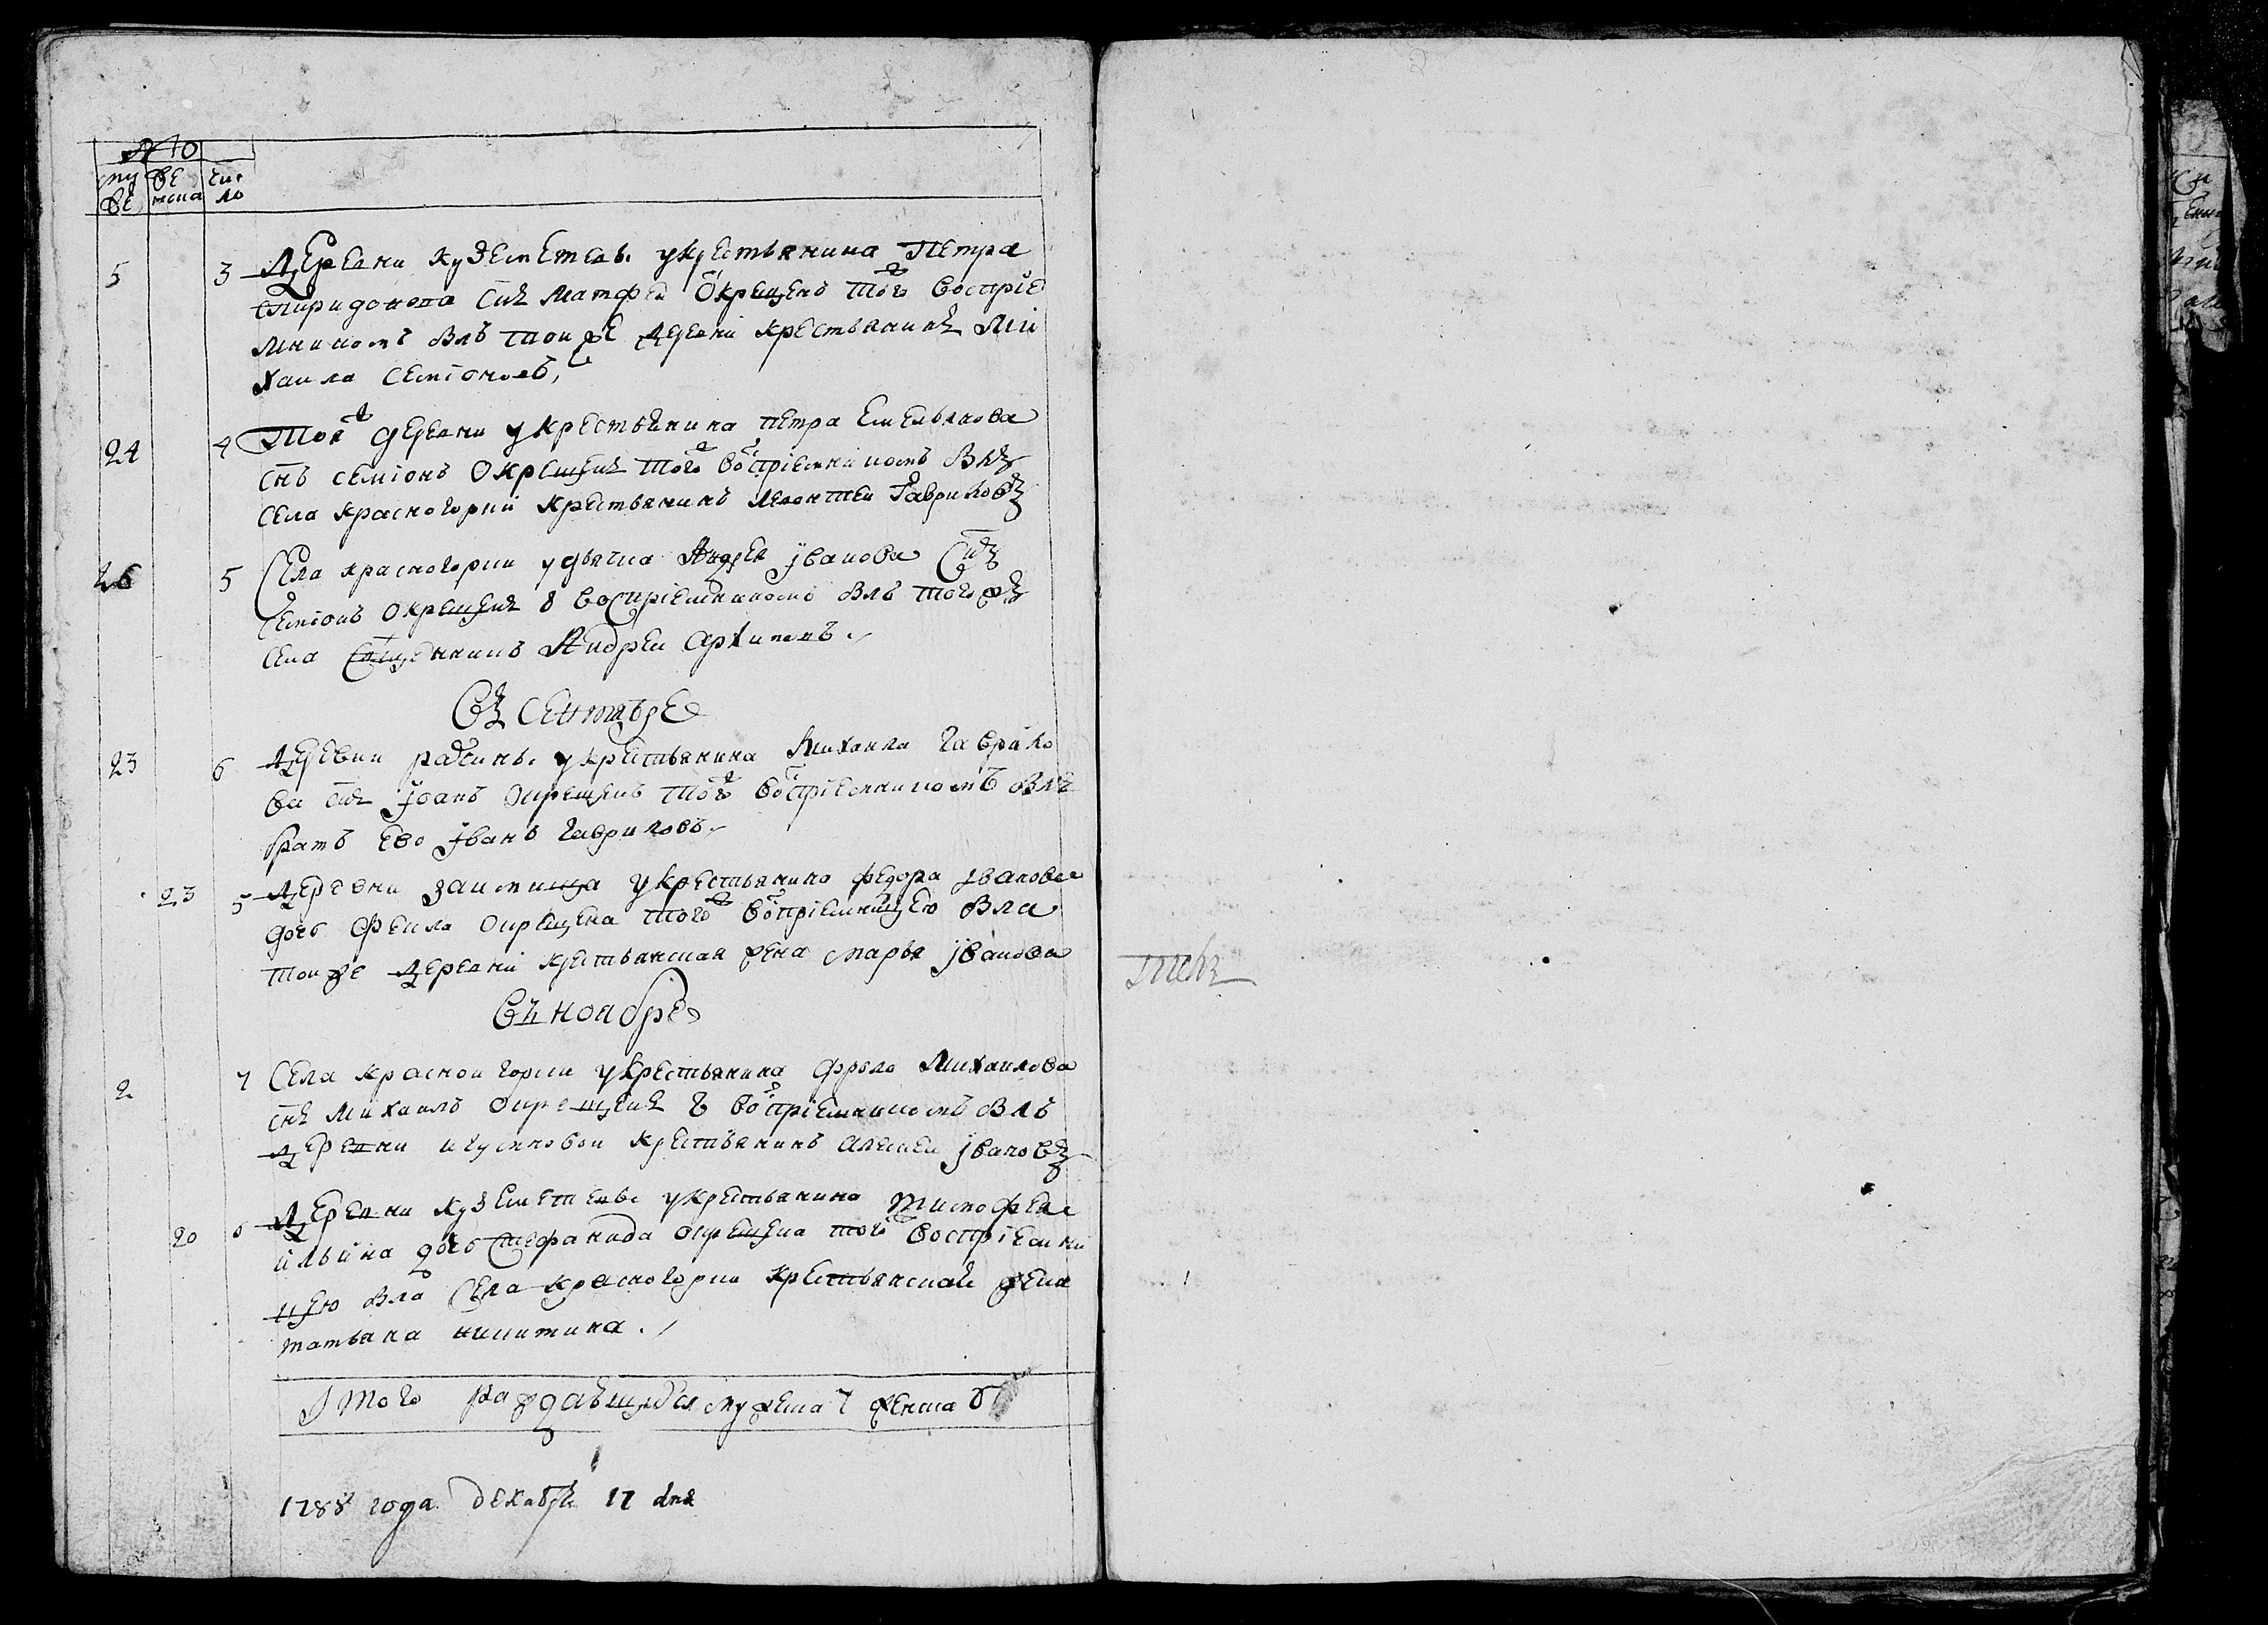 му же числ
же нска ло
5 3 Деревни Куземетевь у крестьянина Петра
Спиридонова снъ Матфеи окрещенъ того воспріе
мникомъ былъ тои же деревни крестьянинъ Ми
хаила Семіоновъ,
24 4 Той деревни у крестьянина Петра Емельянова
снъ Семіонъ окрещенъ того воспріемникомъ былъ
села Красногории крестьянинъ Леонтеи Гавриловъ
26 5 Села Красногории у дьячка Андрея Iванова снъ
Семіонъ окрещенъ 8 воспріемникомъ былъ того жъ
села сщенникъ Андреи Архиповъ.
Въ Сентябре
23 6 Деревни у крестьянина Михаила Гаврило
ва снъ Iванъ окрещенъ того воспріемникомъ былъ
братъ ево Iванъ Гавриловъ
23 5 Деревни Заимища у крестьянина Федора Iванова
дочь Фекла окрещена того воспріемницею была
тои же деревни крестьянская жена Марья Iванова
Въ ноябре
2 7 Села Красногории у крестьянина Фрола Михаилова
снъ Михаилъ окрещенъ воспріемникомъ былъ
деревни крестьянинъ Алексеи Iвановъ
20 6 Деревни Куземетевь у крестьянина Тимофея
Ильина дочь Стефанида окрещена того воспріемни
цею была села Красногории крестьянская жена
Татьяна Никитина.
Iтого раждавшихся мужеска 7 женска 6
1788 года декабря 17 дня